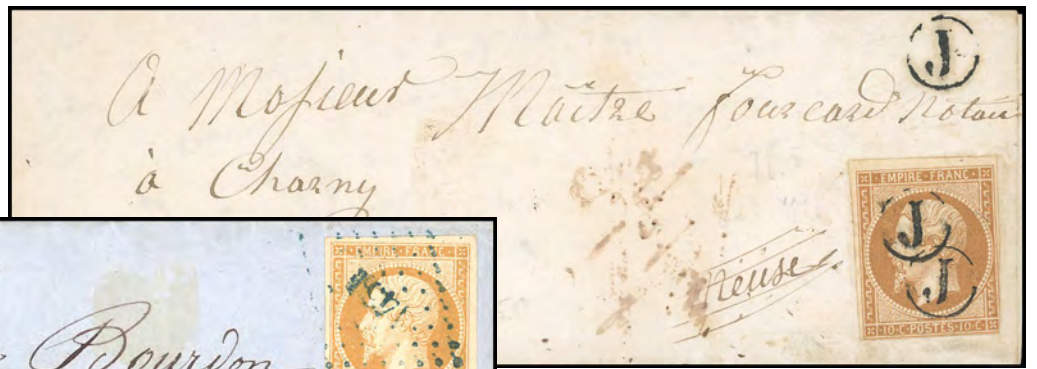 J
A Mosieur Maître Fourcard Notair
à Charny
EMPIRE FRANC
J
J
10·C·POSTES·10·C
Meuse
EMPIRE FRANC
Bourdon